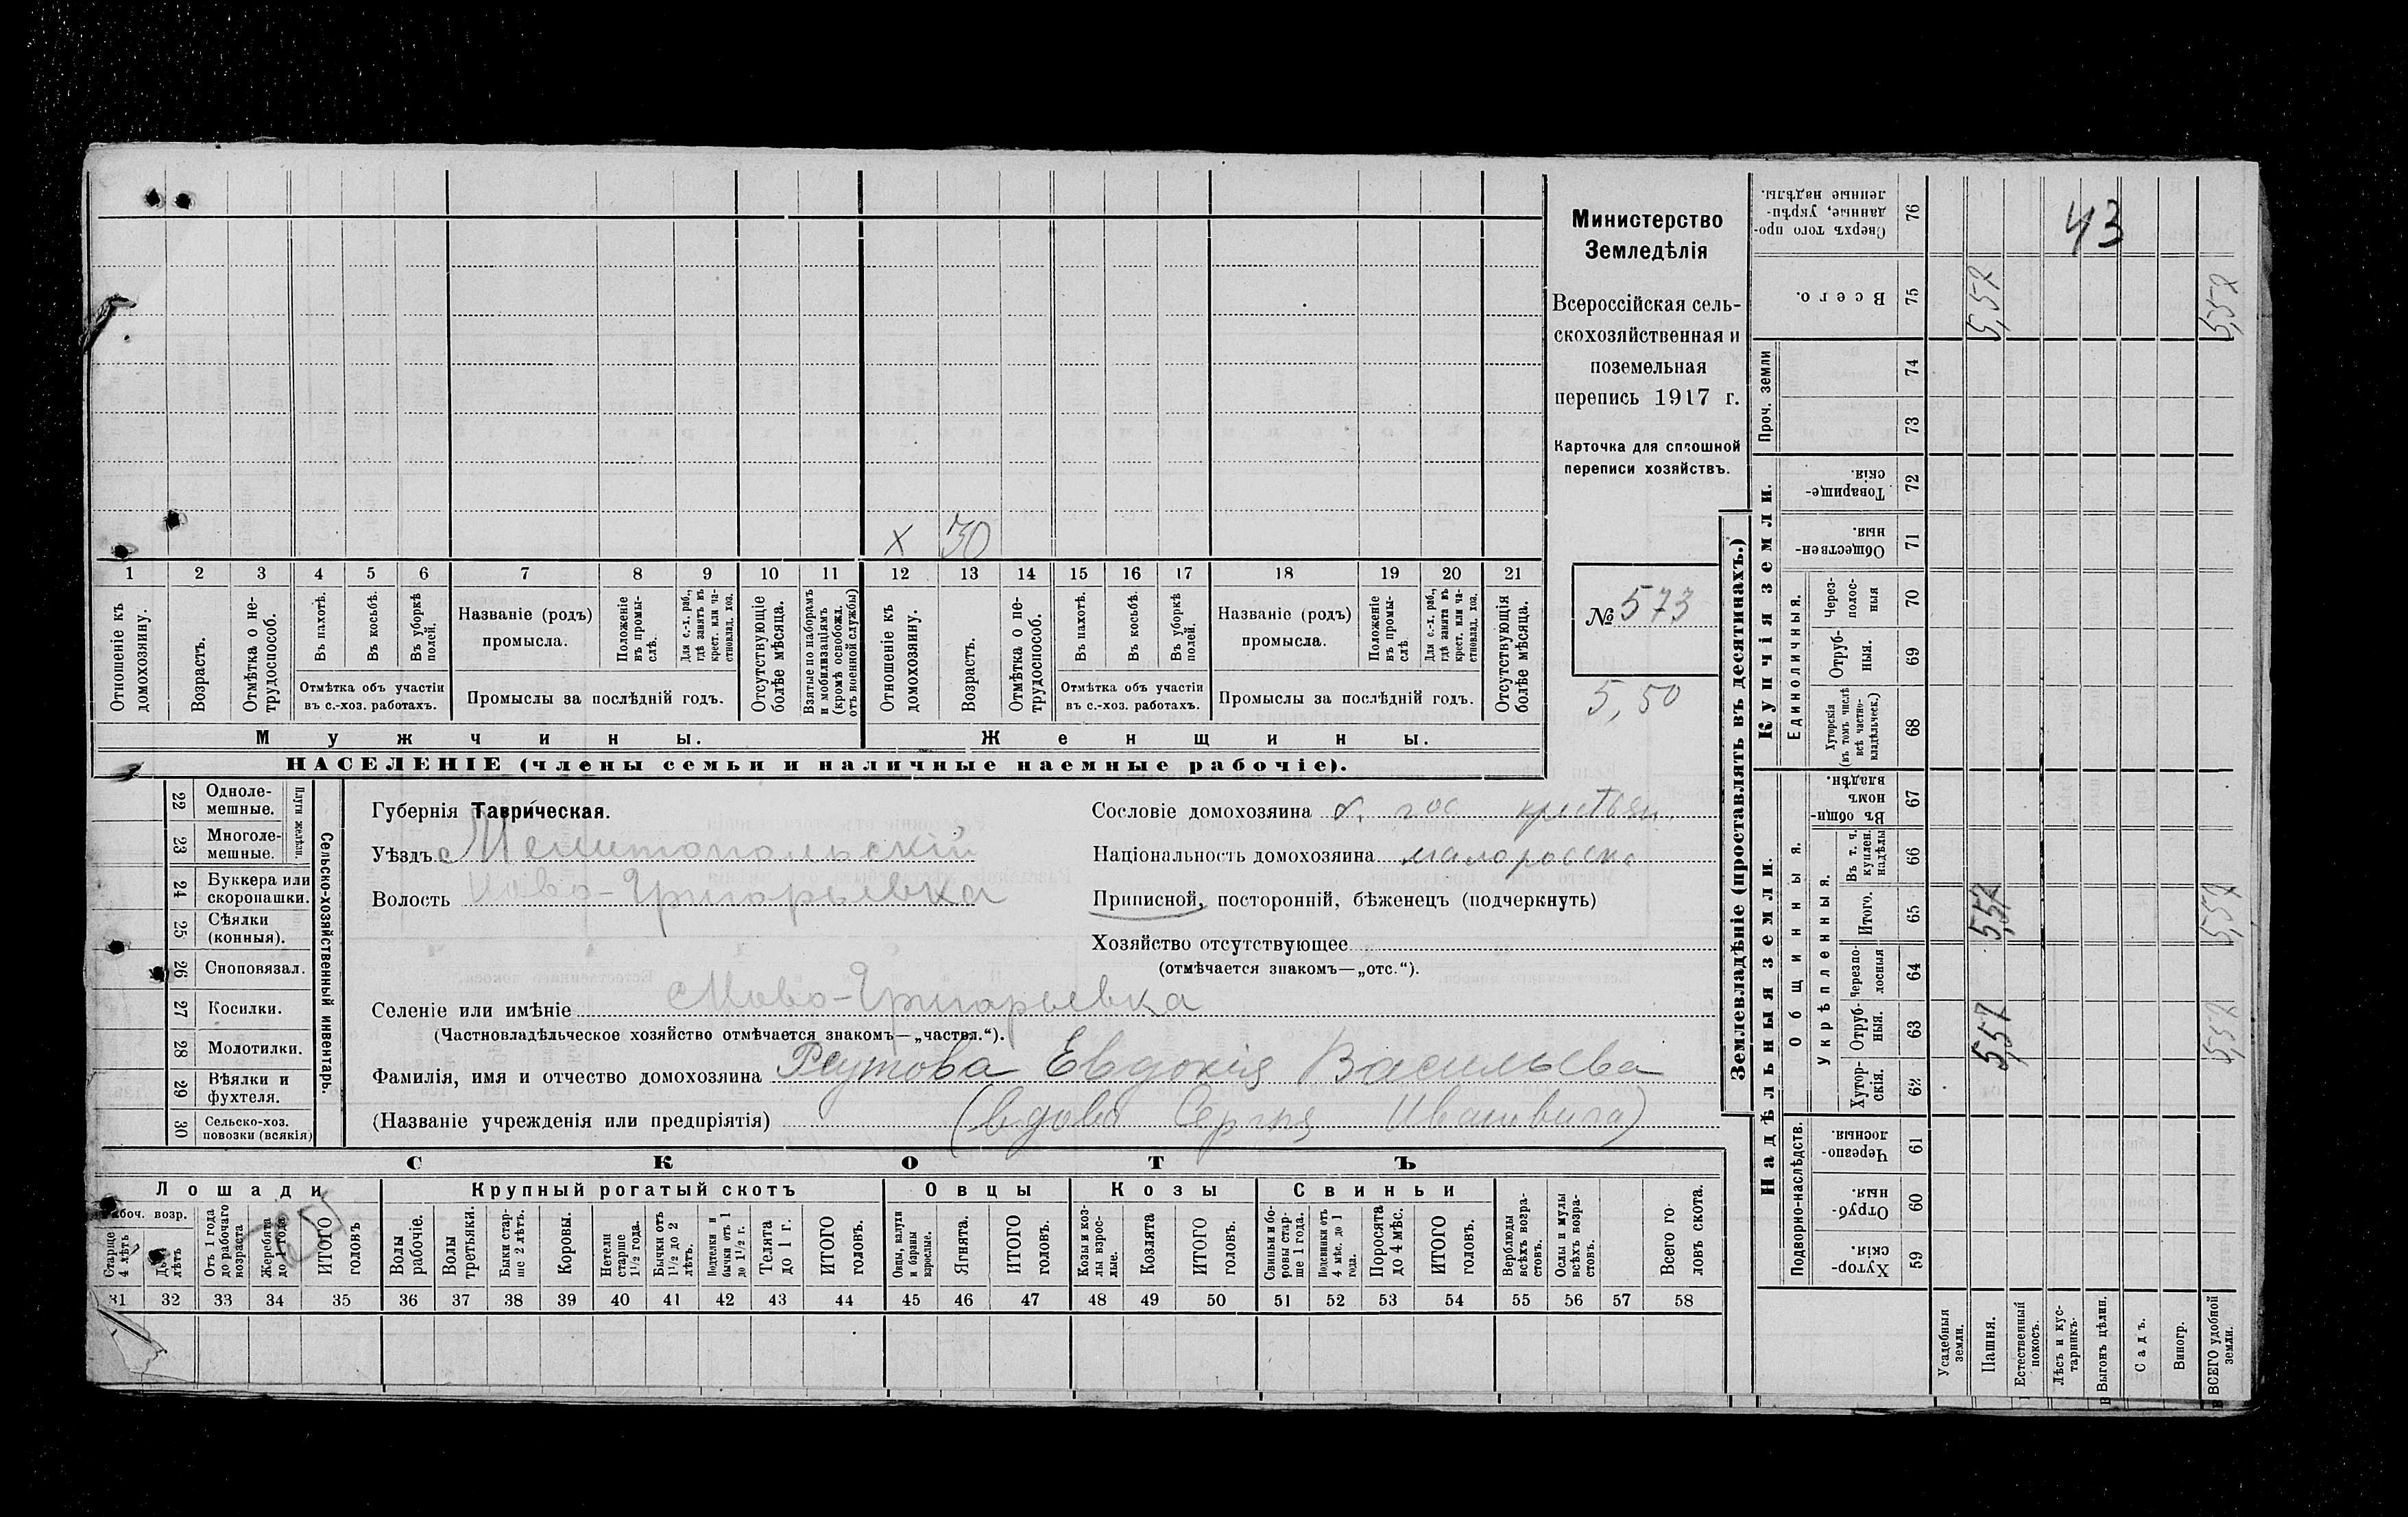 х 30
1 2 3 4 5 6 7 8 9 10 11 12 13 14 15 16 17 18 19 20 21
Отношеніе къ домохозяину.
Возрастъ.
Отмѣтка о нетрудоспособ.
Въ пахотѣ.
Въ косьбѣ.
Въ уборкѣ полей.
Отмѣтка объ участіи
въ с.-хоз. работахъ.
Названіе (родъ)
промысла.
Положеніе въ промы-слѣ.
Для с.-х. раб., гдѣ занятъ въ крест. или ча-стновлад. хоз.
Промыслы за послѣдній годъ.
Отсутствующіе болѣе мѣсяца.
Взятые по наборамъ и мобилизаціямъ (кромѣ освобожд. отъ военной службы)
Отношеніе къ домохозяину.
Возрастъ.
Отмѣтка о не-трудоспособ.
Въ пахотѣ.
Въ косьбѣ.
Въ уборкѣ полей.
Отмѣтка объ участіи
въ с.-хоз. работахъ.
Названіе (родъ)
промысла.
Положеніе въ промы-слѣ
Для с.-х. раб., гдѣ занята въ крест. или ча-стновлад. хоз.
Промыслы за послѣдній годъ.
Отсутствующія болѣе мѣсяца.
Мужчины.
Женщины.
НАСЕЛЕНІЕ (члены семьи и наличные наемные рабочіе).
Министерство
Земледѣлія
Всероссійская сель-
скохозяйственная и
поземельная
перепись 1917 г.
Карточка для сплошной
переписи хозяйствъ.
№ 573
5,50
22 Одноле-мешные.
23 Многоле-мешные.
Плуги желѣзн.
24 Буккера или скоропашки.
25 Сѣялки (конныя).
26 Сноповязал.
27 Косилки.
28 Молотилки.
29 Вѣялки и фухтеля.
30 Сельско-хоз. повозки (всякія)
Сельско-хозяйственный инвентарь.
Губернія Таврическая.
Уѣздъ Мелитопольскій
Волость Ново-Григорьевка
Сословіе домохозяина б. гос крестьян.
Національность домохозяина малороссъ
Приписной, посторонній, бѣженецъ (подчеркнуть)
Хозяйство отсутствующее
(отмѣчается знакомъ—„отс.“).
Селеніе или имѣніе Ново-Григорьевка
(Частновладѣльческое хозяйство отмѣчается знакомъ—„частвл.“).
Фамилія, имя и отчество домохозяина Реутова Евдокія Васильева
(Названіе учрежденія или предпріятія) (вдова Сергѣя Ивановича)
СКОТЪ
Лошади
Крупный рогатый скотъ
Овцы
Козы
Свиньи
Рабоч. возр.
Старше 4 лѣтъ
До 4 лѣтъ
Отъ 1 года до рабочаго возраста
Жеребята до 1 года
ИТОГО головъ
Волы рабочіе.
Волы третьяки.
Быки стар-ше 2 лѣтъ.
Коровы.
Нетели старше 1½ года.
Бычки отъ 1½ до 2 лѣтъ.
Подтелки и бычки отъ 1 до 1½ г.
Телята до 1 г.
ИТОГО головъ.
Овцы, валухи и бараны взрослые.
Ягнята.
ИТОГО головъ.
Козы и коз-лы взрос-лые.
Козлята
ИТОГО головъ.
Свиньи и бо-ровы стар-ше 1 года.
Подсвинки отъ 4 мѣс. до 1 года.
Поросята до 4 мѣс.
ИТОГО головъ.
Верблюды всѣхъ возра-стовъ.
Ослы и мулы всѣхъ возра-стовъ.
Всего го-ловъ скота.
31 32 33 34 35 36 37 38 39 40 41 42 43 44 45 46 47 48 49 50 51 52 53 54 55 56 57 58
Землевладѣніе (проставлять въ десятинахъ.)
Надѣльныя земли.
Купчія земли.
Проч. земли
Подворно-наслѣдств.
Общинныя.
Укрѣпленныя.
Единоличныя.
Хутор-скія. 59
Отруб-ныя. 60
Черезпо-лосныя. 61
Хутор-скія. 62
Отруб-ныя. 63
Черезпо-лосныя 64
Итого. 65
Въ т. ч. куплен. надѣлы 66
Въ общи-номъ владѣн. 67
Хуторскія (въ томъ числѣ всѣ частно-владѣльческ.) 68
Отруб-ныя. 69
Через-полос-ныя 70
Обществен-ныя. 71
Товарище-скія. 72
73
74
Всего. 75
Сверхъ того про-данные, укрѣп-ленные надѣлы. 76
Усадебныя земли.
Пашня. 5,57 5,57 5,57
Естественный покосъ.
Лѣсъ и кус-тарникъ.
Выгонъ цѣлин.
Садъ.
Виногр.
ВСЕГО удобной земли. 5,57 5,57 5,57
43